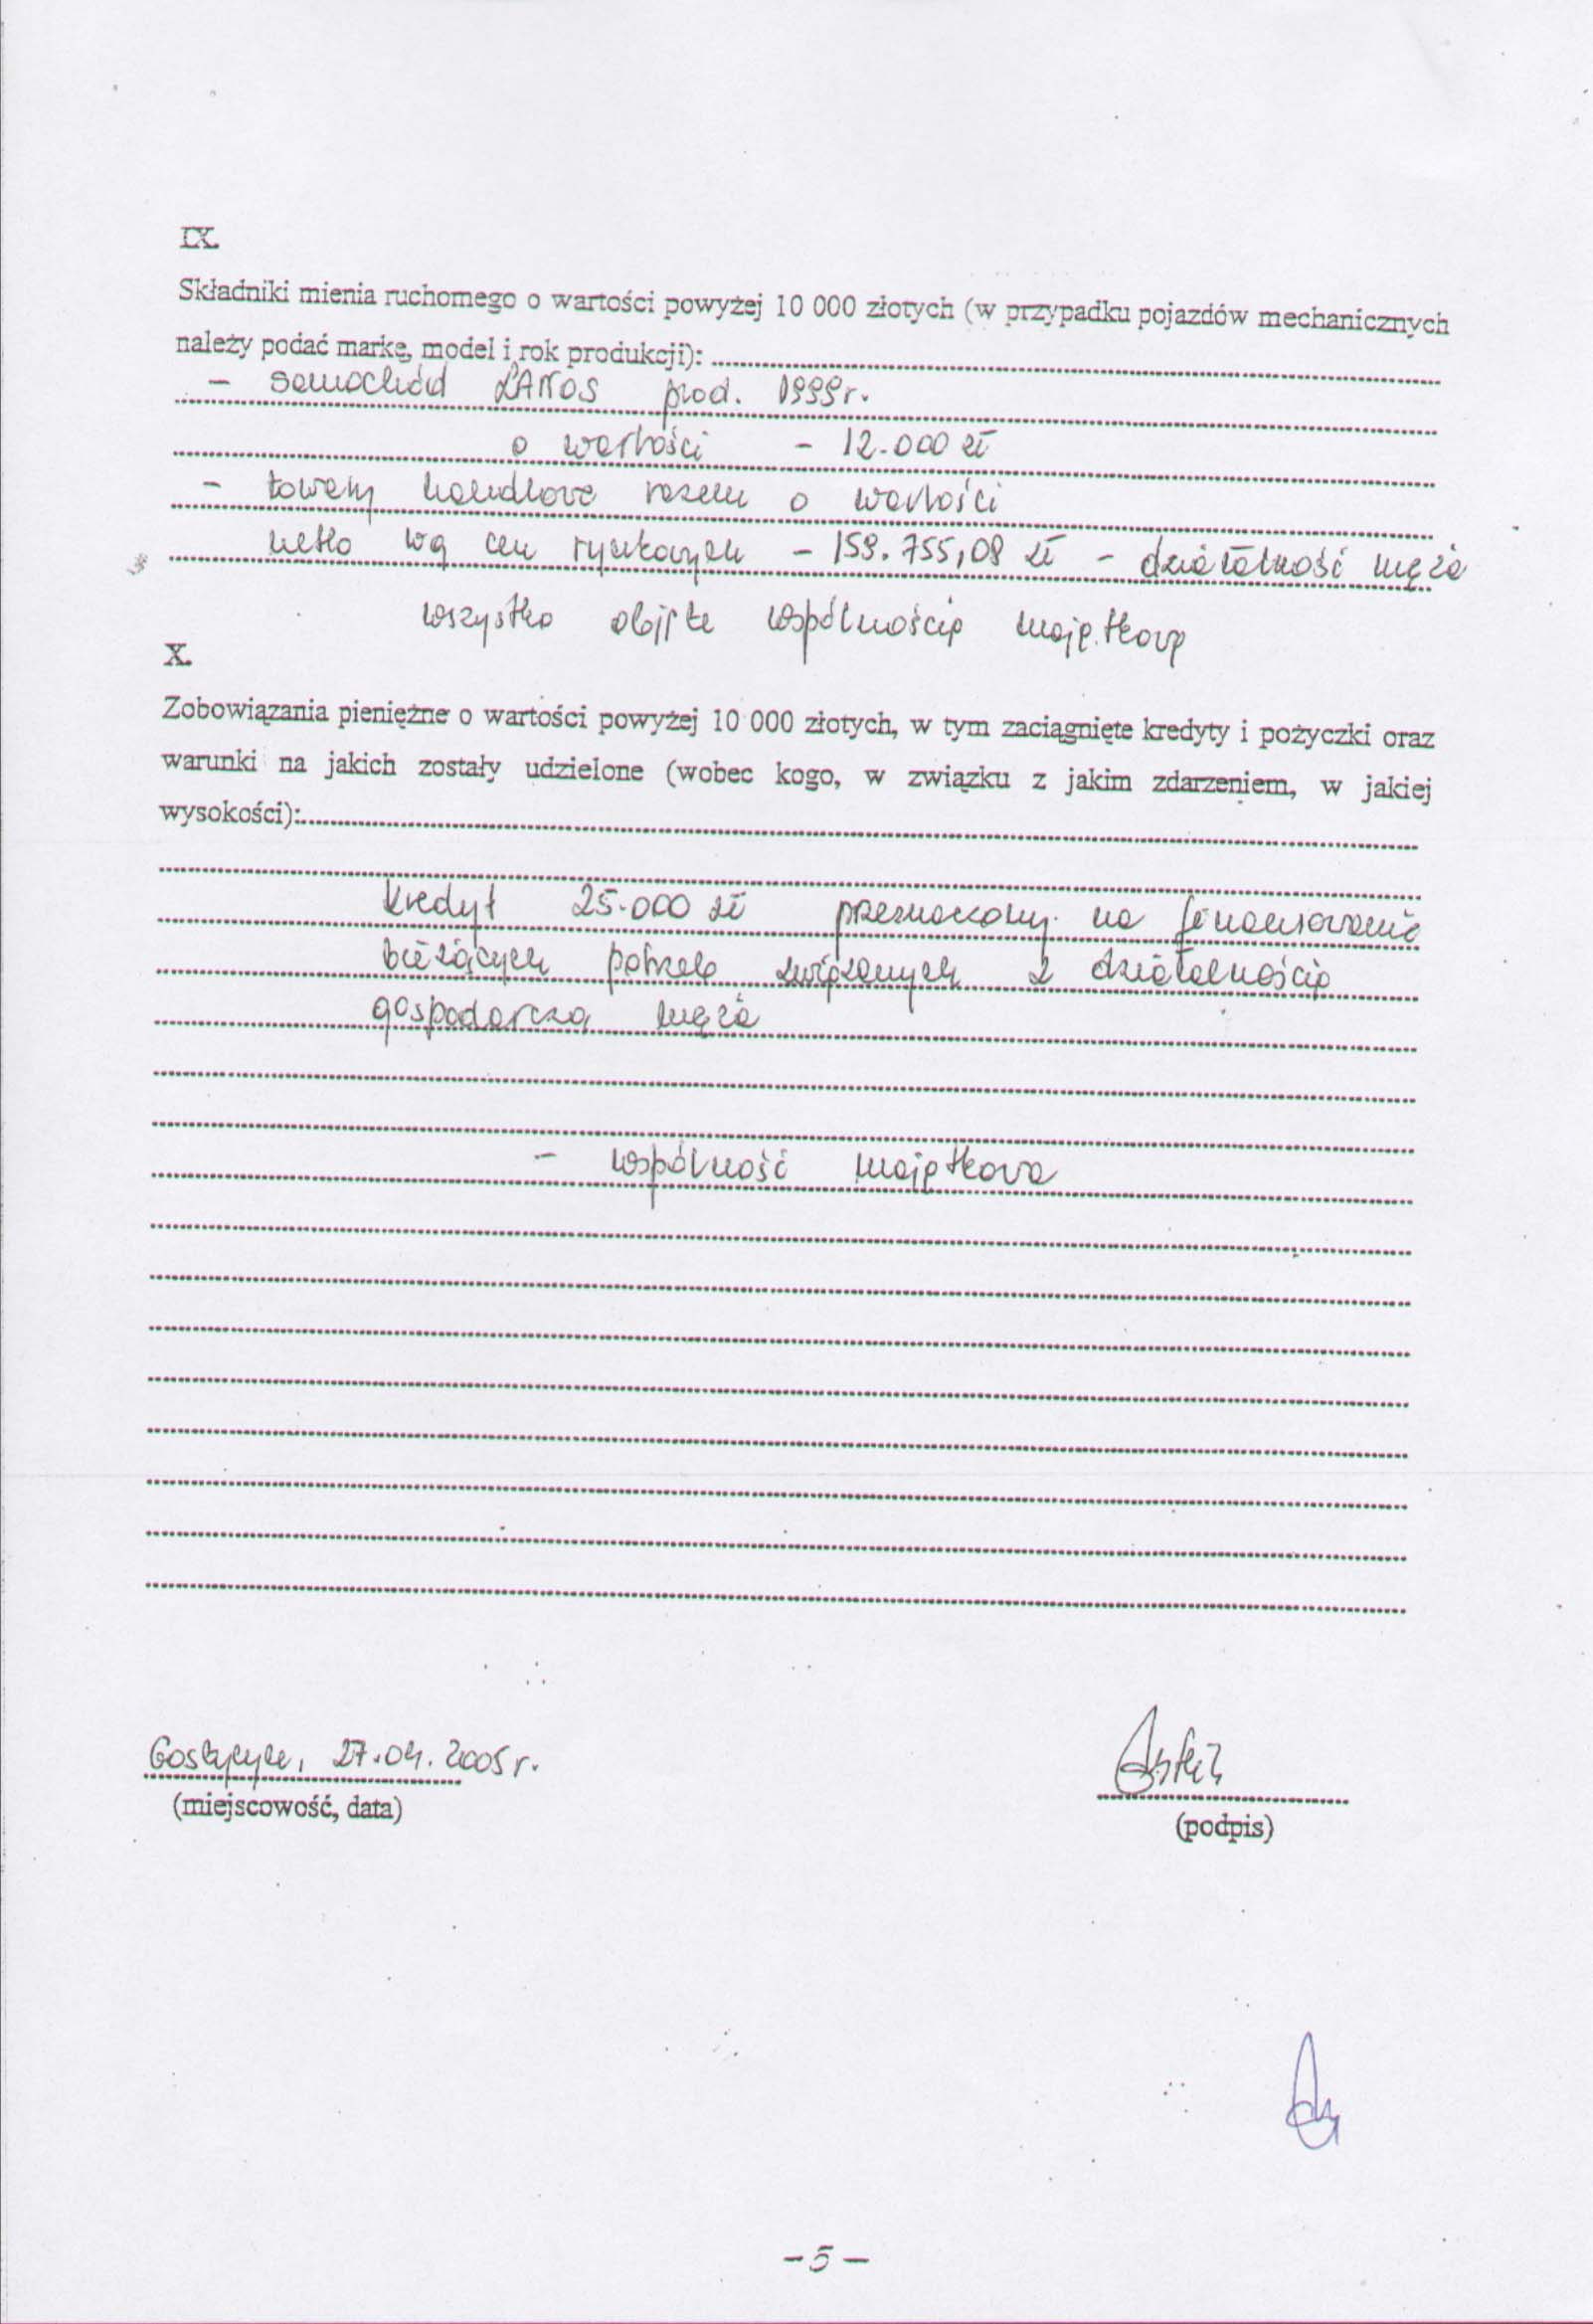 IX.
Składniki mienia ruchomego o wartości powyżej 10 000 złotych (w przypadku pojazdów mechanicznych
należy podać markę, model i rok produkcji):
- samochód LANOS prod. 1999r.
o wartości - 12.000 zł
- towary handlowe razem o wartości
netto wg cen rynkowych - 159.755,08 zł - działalność męża
wszystko objęte wspólnością majątkową
X.
Zobowiązania pieniężne o wartości powyżej 10 000 złotych, w tym zaciągnięte kredyty i pożyczki oraz
warunki na jakich zostały udzielone (wobec kogo, w związku z jakim zdarzeniem, w jakiej
wysokości):
Kredyt 25.000 zł przeznaczony na finansowanie
bieżących potrzeb związanych z działalnością
gospodarczą męża
- wspólność majątkowa
Gostycyn, 27.04.2005 r.
(miejscowość, data)
(podpis)
- 5 -